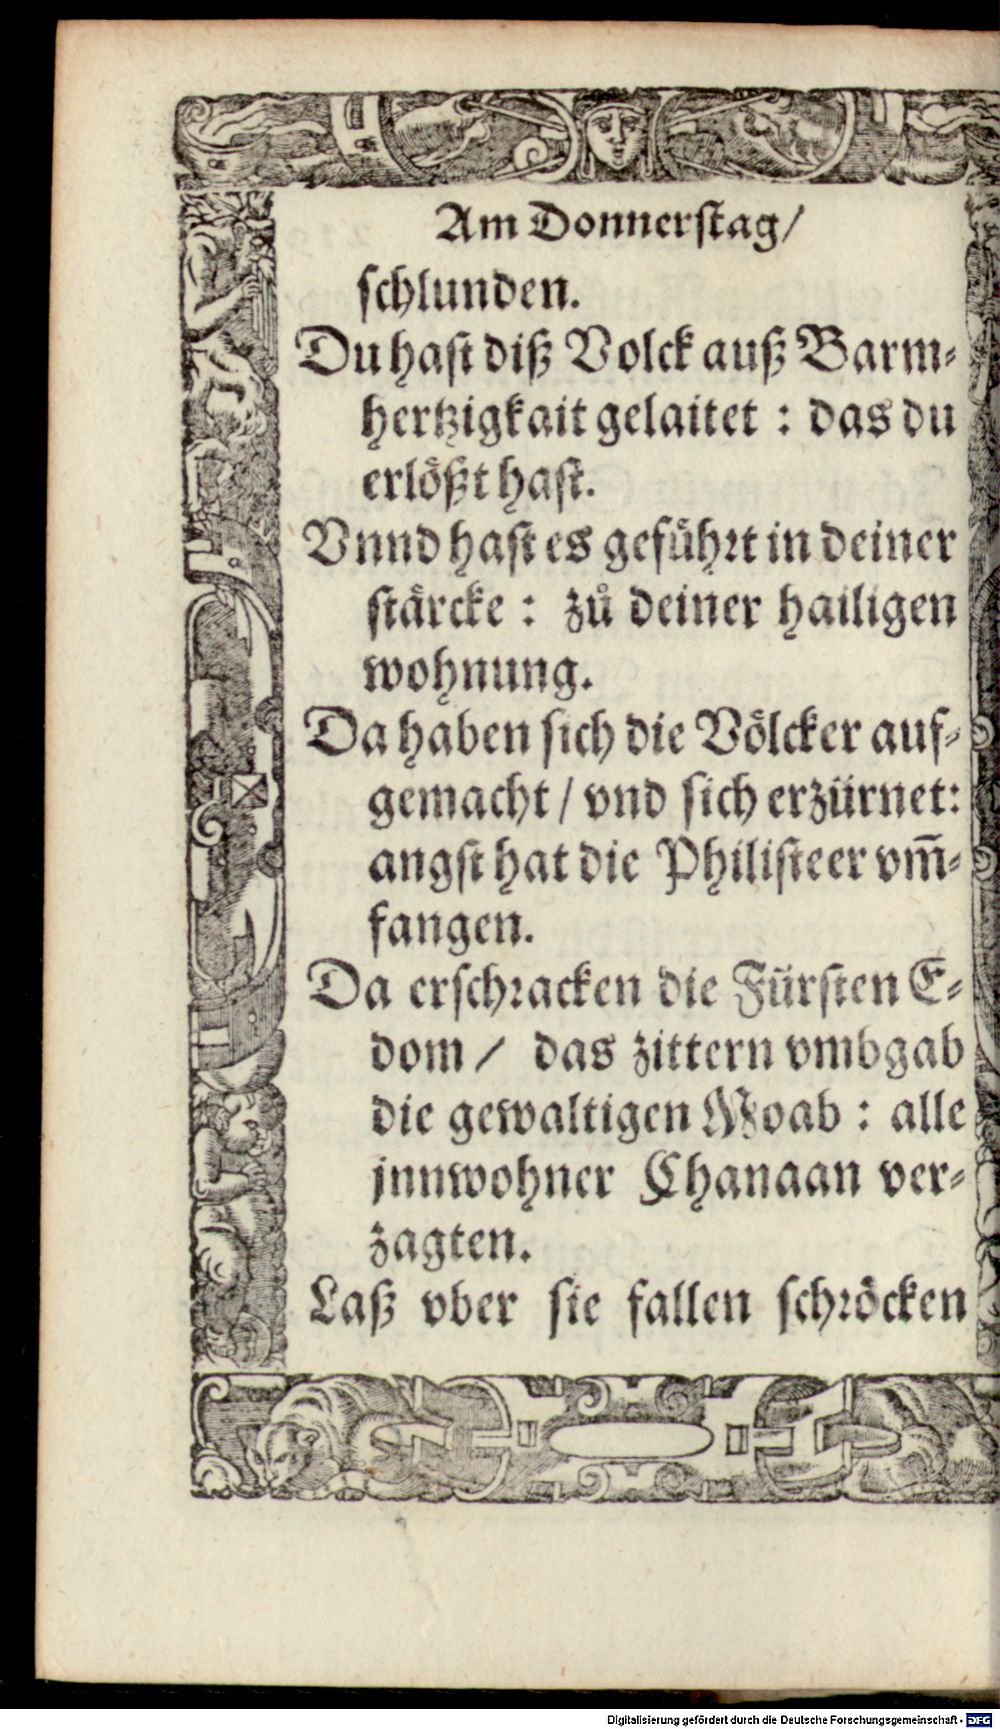 Am Donnerſtag/
ſchlunden.
Du haſt diß Volck auß Barm⸗
hertzigkait gelaitet : das du
erlößt haſt.
Vnnd haſt es gefuͤhꝛt in deiner
ſtaͤrcke : zů deiner hailigen
wohnung.
Da haben ſich die Voͤlcker auf⸗
gemacht / vnd ſich erzürnet:
angſt hat die Philiſteer vm̄⸗
fangen.
Da erſchꝛacken die Fürſten E⸗
dom / das zittern vmbgab
die gewaltigen Moab : alle
jnnwohner Chanaan ver⸗
zagten.
Laß vber ſie fallen ſchꝛoͤcken
Digitalisierung gefördert durch die Deutsche Forschungsgemeinschaft - DFG